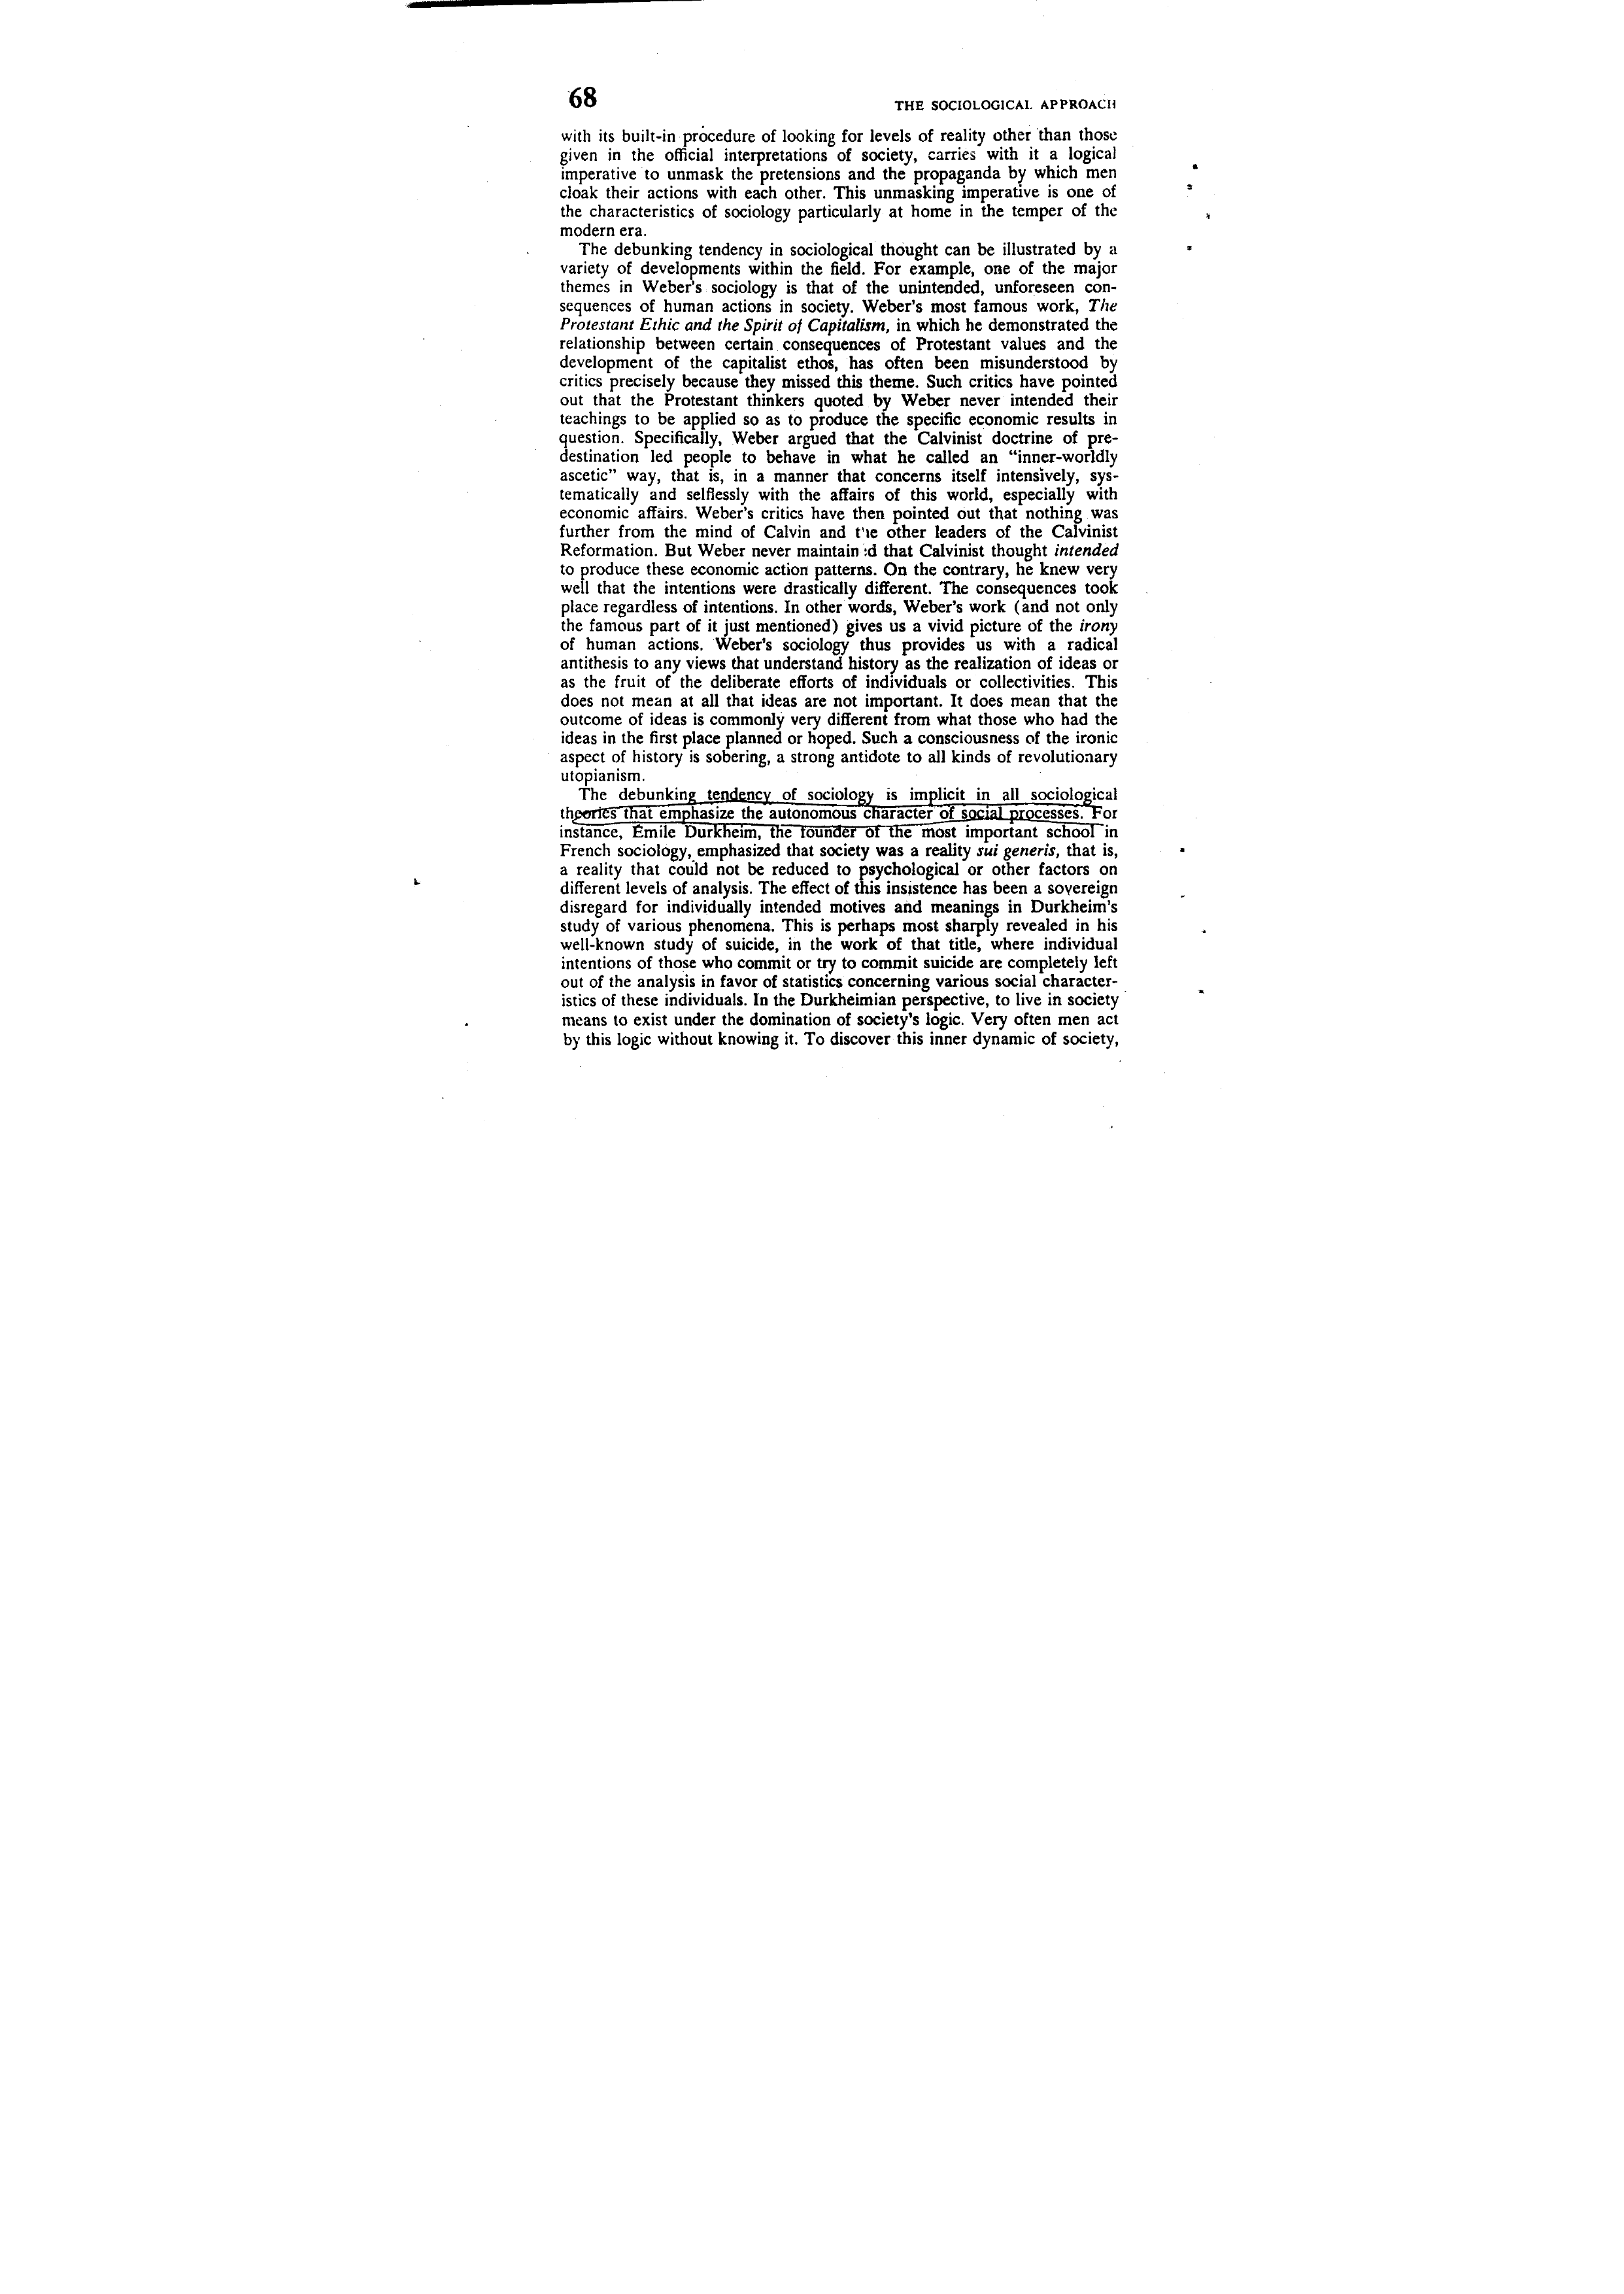 68 THE SOCIOLOGICAL APPROACH
with its built-in procedure of looking for levels of reality other than those
given in the official interpretations of society, carries with it a logical
imperative to unmask the pretensions and the propaganda by which men
cloak their actions with each other. This unmasking imperative is one of
the characteristics of sociology particularly at home in the temper of the
modern era.
The debunking tendency in sociological thought can be illustrated by a
variety of developments within the field. For example, one of the major
themes in Weber's sociology is that of the unintended, unforeseen con-
sequences of human actions in society. Weber's most famous work, The
Protestant Ethic and the Spirit of Capitalism, in which he demonstrated the
relationship between certain consequences of Protestant values and the
development of the capitalist ethos, has often been misunderstood by
critics precisely because they missed this theme. Such critics have pointed
out that the Protestant thinkers quoted by Weber never intended their
teachings to be applied so as to produce the specific economic results in
question. Specifically, Weber argued that the Calvinist doctrine of pre-
destination led people to behave in what he called an “inner-worldly
ascetic” way, that is, in a manner that concerns itself intensively, sys-
tematically and selflessly with the affairs of this world, especially with
economic affairs. Weber's critics have then pointed out that nothing was
further from the mind of Calvin and the other leaders of the Calvinist
Reformation. But Weber never maintained that Calvinist thought intended
to produce these economic action patterns. On the contrary, he knew very
well that the intentions were drastically different. The consequences took
place regardless of intentions. In other words, Weber's work (and not only
the famous part of it just mentioned) gives us a vivid picture of the irony
of human actions. Weber's sociology thus provides us with a radical
antithesis to any views that understand history as the realization of ideas or
as the fruit of the deliberate efforts of individuals or collectivities. This
does not mean at all that ideas are not important. It does mean that the
outcome of ideas is commonly very different from what those who had the
ideas in the first place planned or hoped. Such a consciousness of the ironic
aspect of history is sobering, a strong antidote to all kinds of revolutionary
utopianism.
The debunking tendency of sociology is implicit in all sociological
theories that emphasize the autonomous character of social processes. For
instance, Émile Durkheim, the founder of the most important school in
French sociology, emphasized that society was a reality sui generis, that is,
a reality that could not be reduced to psychological or other factors on
different levels of analysis. The effect of this insistence has been a sovereign
disregard for individually intended motives and meanings in Durkheim's
study of various phenomena. This is perhaps most sharply revealed in his
well-known study of suicide, in the work of that title, where individual
intentions of those who commit or try to commit suicide are completely left
out of the analysis in favor of statistics concerning various social character-
istics of these individuals. In the Durkheimian perspective, to live in society
means to exist under the domination of society's logic. Very often men act
by this logic without knowing it. To discover this inner dynamic of society,